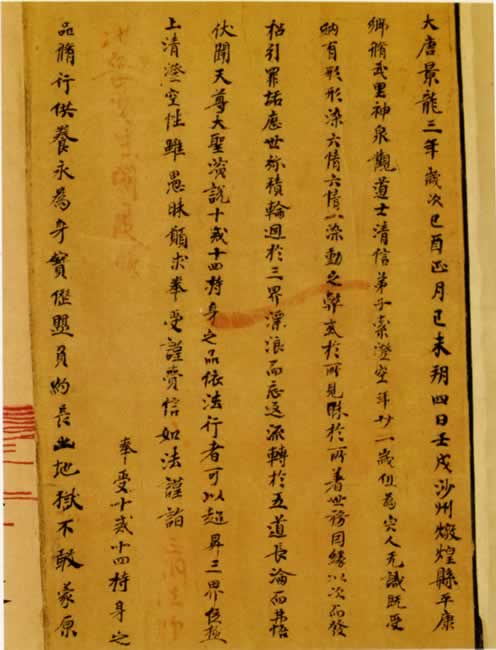 大唐景龍三年歲次己酉正月己未朔四日壬戌沙州燉煌縣平康
鄉脩武里神泉觀道士清信弟子索澄空年廿一歲但為宍人无識既受
納有形形染六情六情一染動之弊或於所見昧於所著世務因緣以次而發
招引罪垢歷世弥積輪迴於三界漂浪而忘返流轉於五道長淪而弗悟
伏聞天尊大聖演說十戒十四持身之品依法行者可以超昇三界位極
上清澄空性雖愚昧願求奉受謹賫信如法謹詣三洞法師
奉受十戒十四持身之
品脩行供養永為身寶僁盟負約長幽地獄不敢蒙原